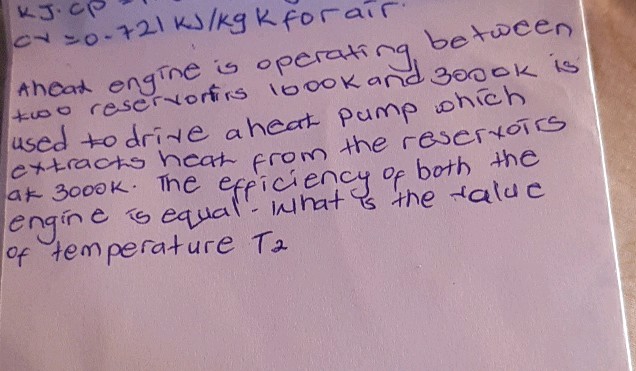 KJ. CP
cv = 0.721 kJ/kg K for air.
A heat engine is operating between
two reservoirs 1000K and 3000K is
used to drive a heat pump which
extracts heat from the reservoirs
at 3000K. The efficiency of both the
engine is equal. What is the value
of temperature T2